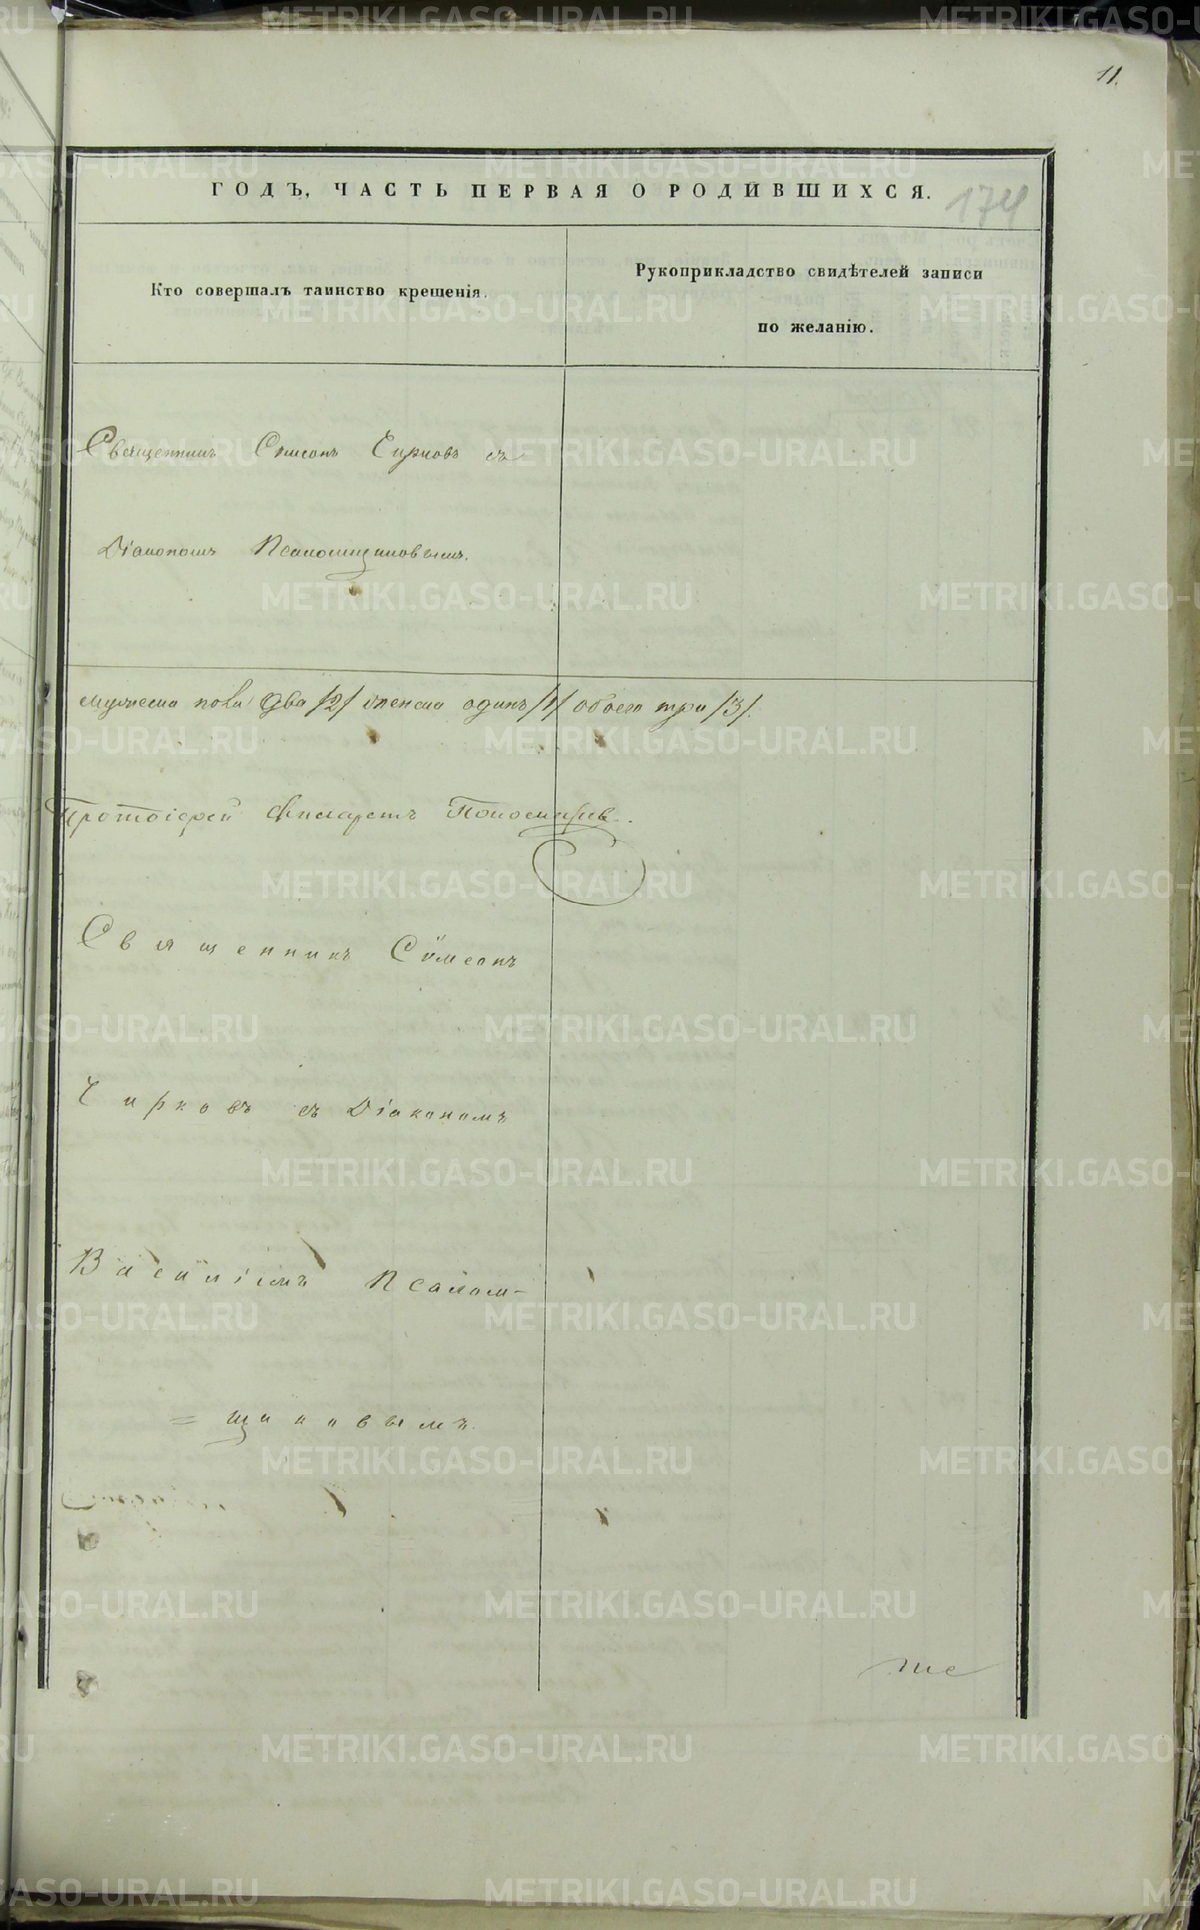 11.
ГОДЪ, ЧАСТЬ ПЕРВАЯ О РОДИВШИХСЯ.
174
Кто совершалъ таинство крещенія.
Рукоприкладство свидѣтелей записи
по желанію.
Священникъ Симеонъ Чирковъ съ
Діакономъ Псаломщиковымъ.
мужеска пола два /2/ женска одинъ /1/ обоего три /3/.
Протоіерей Филаретъ
Священникъ Симеонъ
Чирковъ съ Діакономъ
Василіемъ Псалом-
= щиковымъ.
METRIKI.GASO-URAL.RU